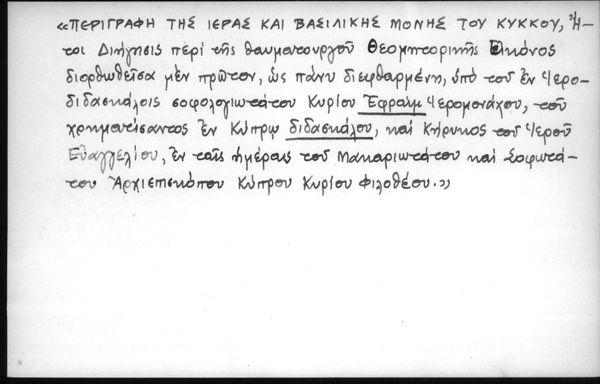 «ΠΕΡΙΓΡΑΦΗ ΤΗΣ ΙΕΡΑΣ ΚΑΙ ΒΑΣΙΛΙΚΗΣ ΜΟΝΗΣ ΤΟΥ ΚΥΚΚΟΥ, Ἤ-
τοι Διήγησις περί τῆς θαυματουργοῦ Θεομητορικῆς Εἰκόνος
διορθωθεῖσα μέν πρῶτον, ὡς πάνυ διεφθαρμένη, ὑπό τοῦ ἐν Ἱερο-
διδασκάλοις σοφολογιωτάτου Κυρίου Ἐφραίμ Ἱερομονάχου, τοῦ
χρηματίσαντος ἐν Κύπρῳ διδασκάλου, καί Κήρυκος τοῦ Ἱεροῦ
Εὐαγγελίου, ἐν ταῖς ἡμέραις τοῦ Μακαριωτάτου καί Σοφωτά-
του Ἀρχιεπισκόπου Κύπρου Κυρίου Φιλοθέου.»